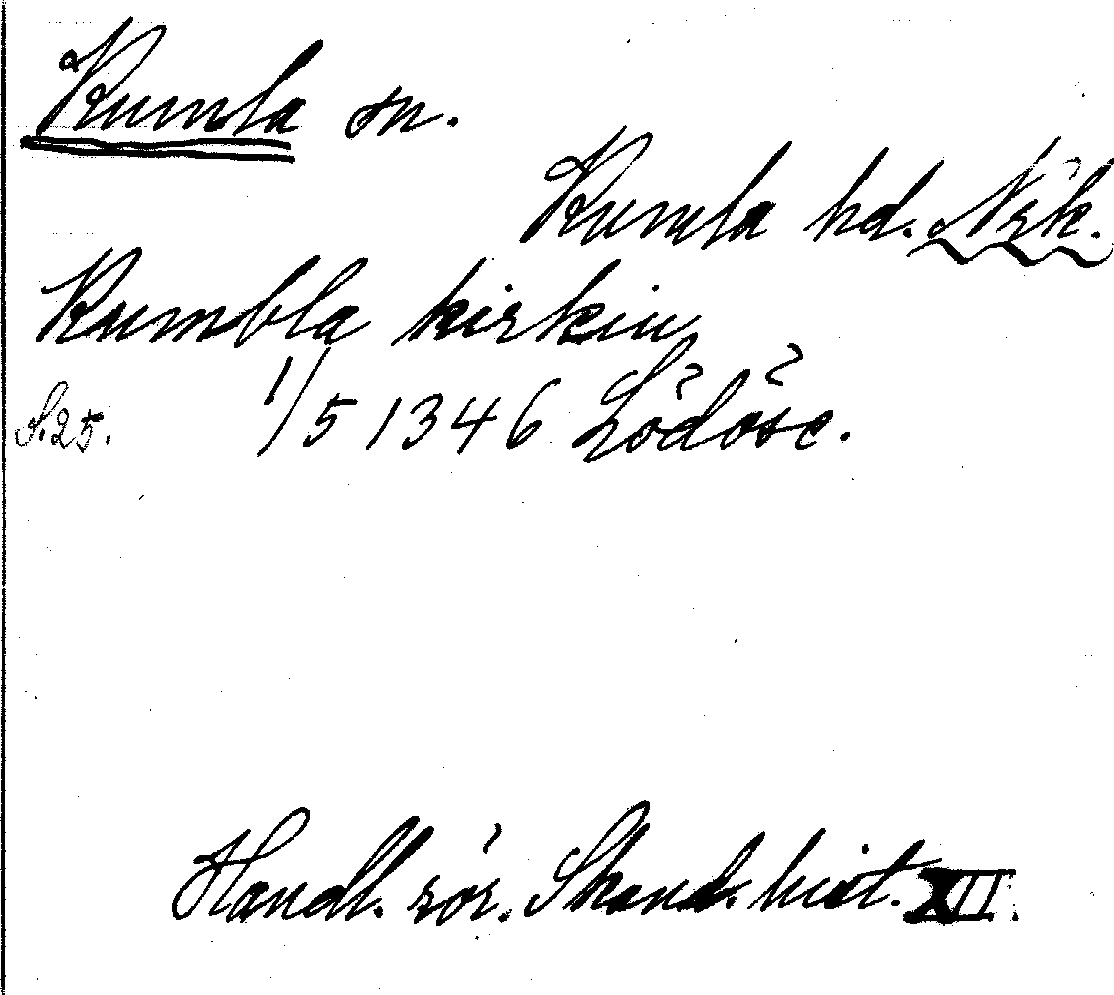 Kumla sn.
Kumla hd. Nrk.
Kumbla kirkiu
S. 25. 1/5 1346 Lödöse.
Handl. rör. Skand. hist. XII.